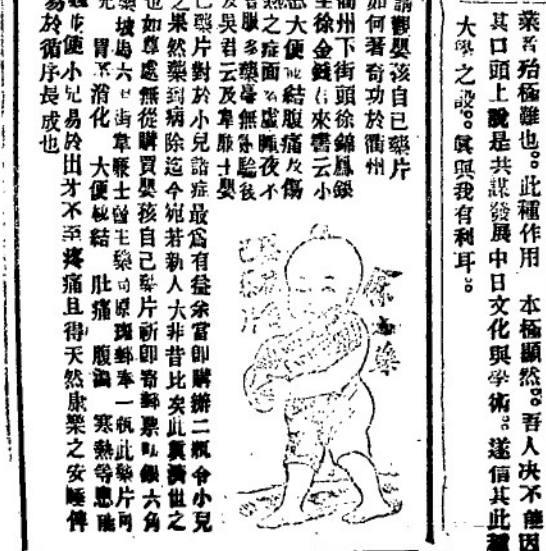 藥者殆極難也。此種作用 本極顯然。吾人决不能因
其口頭上說是共謀發展中日文化與學術。遂信其此種
大學之設。眞與我有利耳。
請觀嬰孩自己藥片
如何著奇功於衢州
衢州下街頭徐錦鳳銀
徐金錢 來書云小
大便 結腹痛及傷
熱之症面 虛睡夜不
服多藥毫無 驗後
吳君云及韋廉士嬰
己藥片對於小兒諸症最爲有益余當即購辦二瓶令小兒
之果然藥到病除迄今宛若新人大非昔比矣此眞濟世之
也如尊處無從購買嬰孩自己藥片祈即寄郵票 銀六角
六 街韋廉士醫生藥 原班郵奉一瓶此藥片可
胃 消化 大便秘結 肚痛 腹瀉 寒熱等患能
使小兒易於出牙不至疼痛且得天然康樂之安睡俾
易於循序長成也